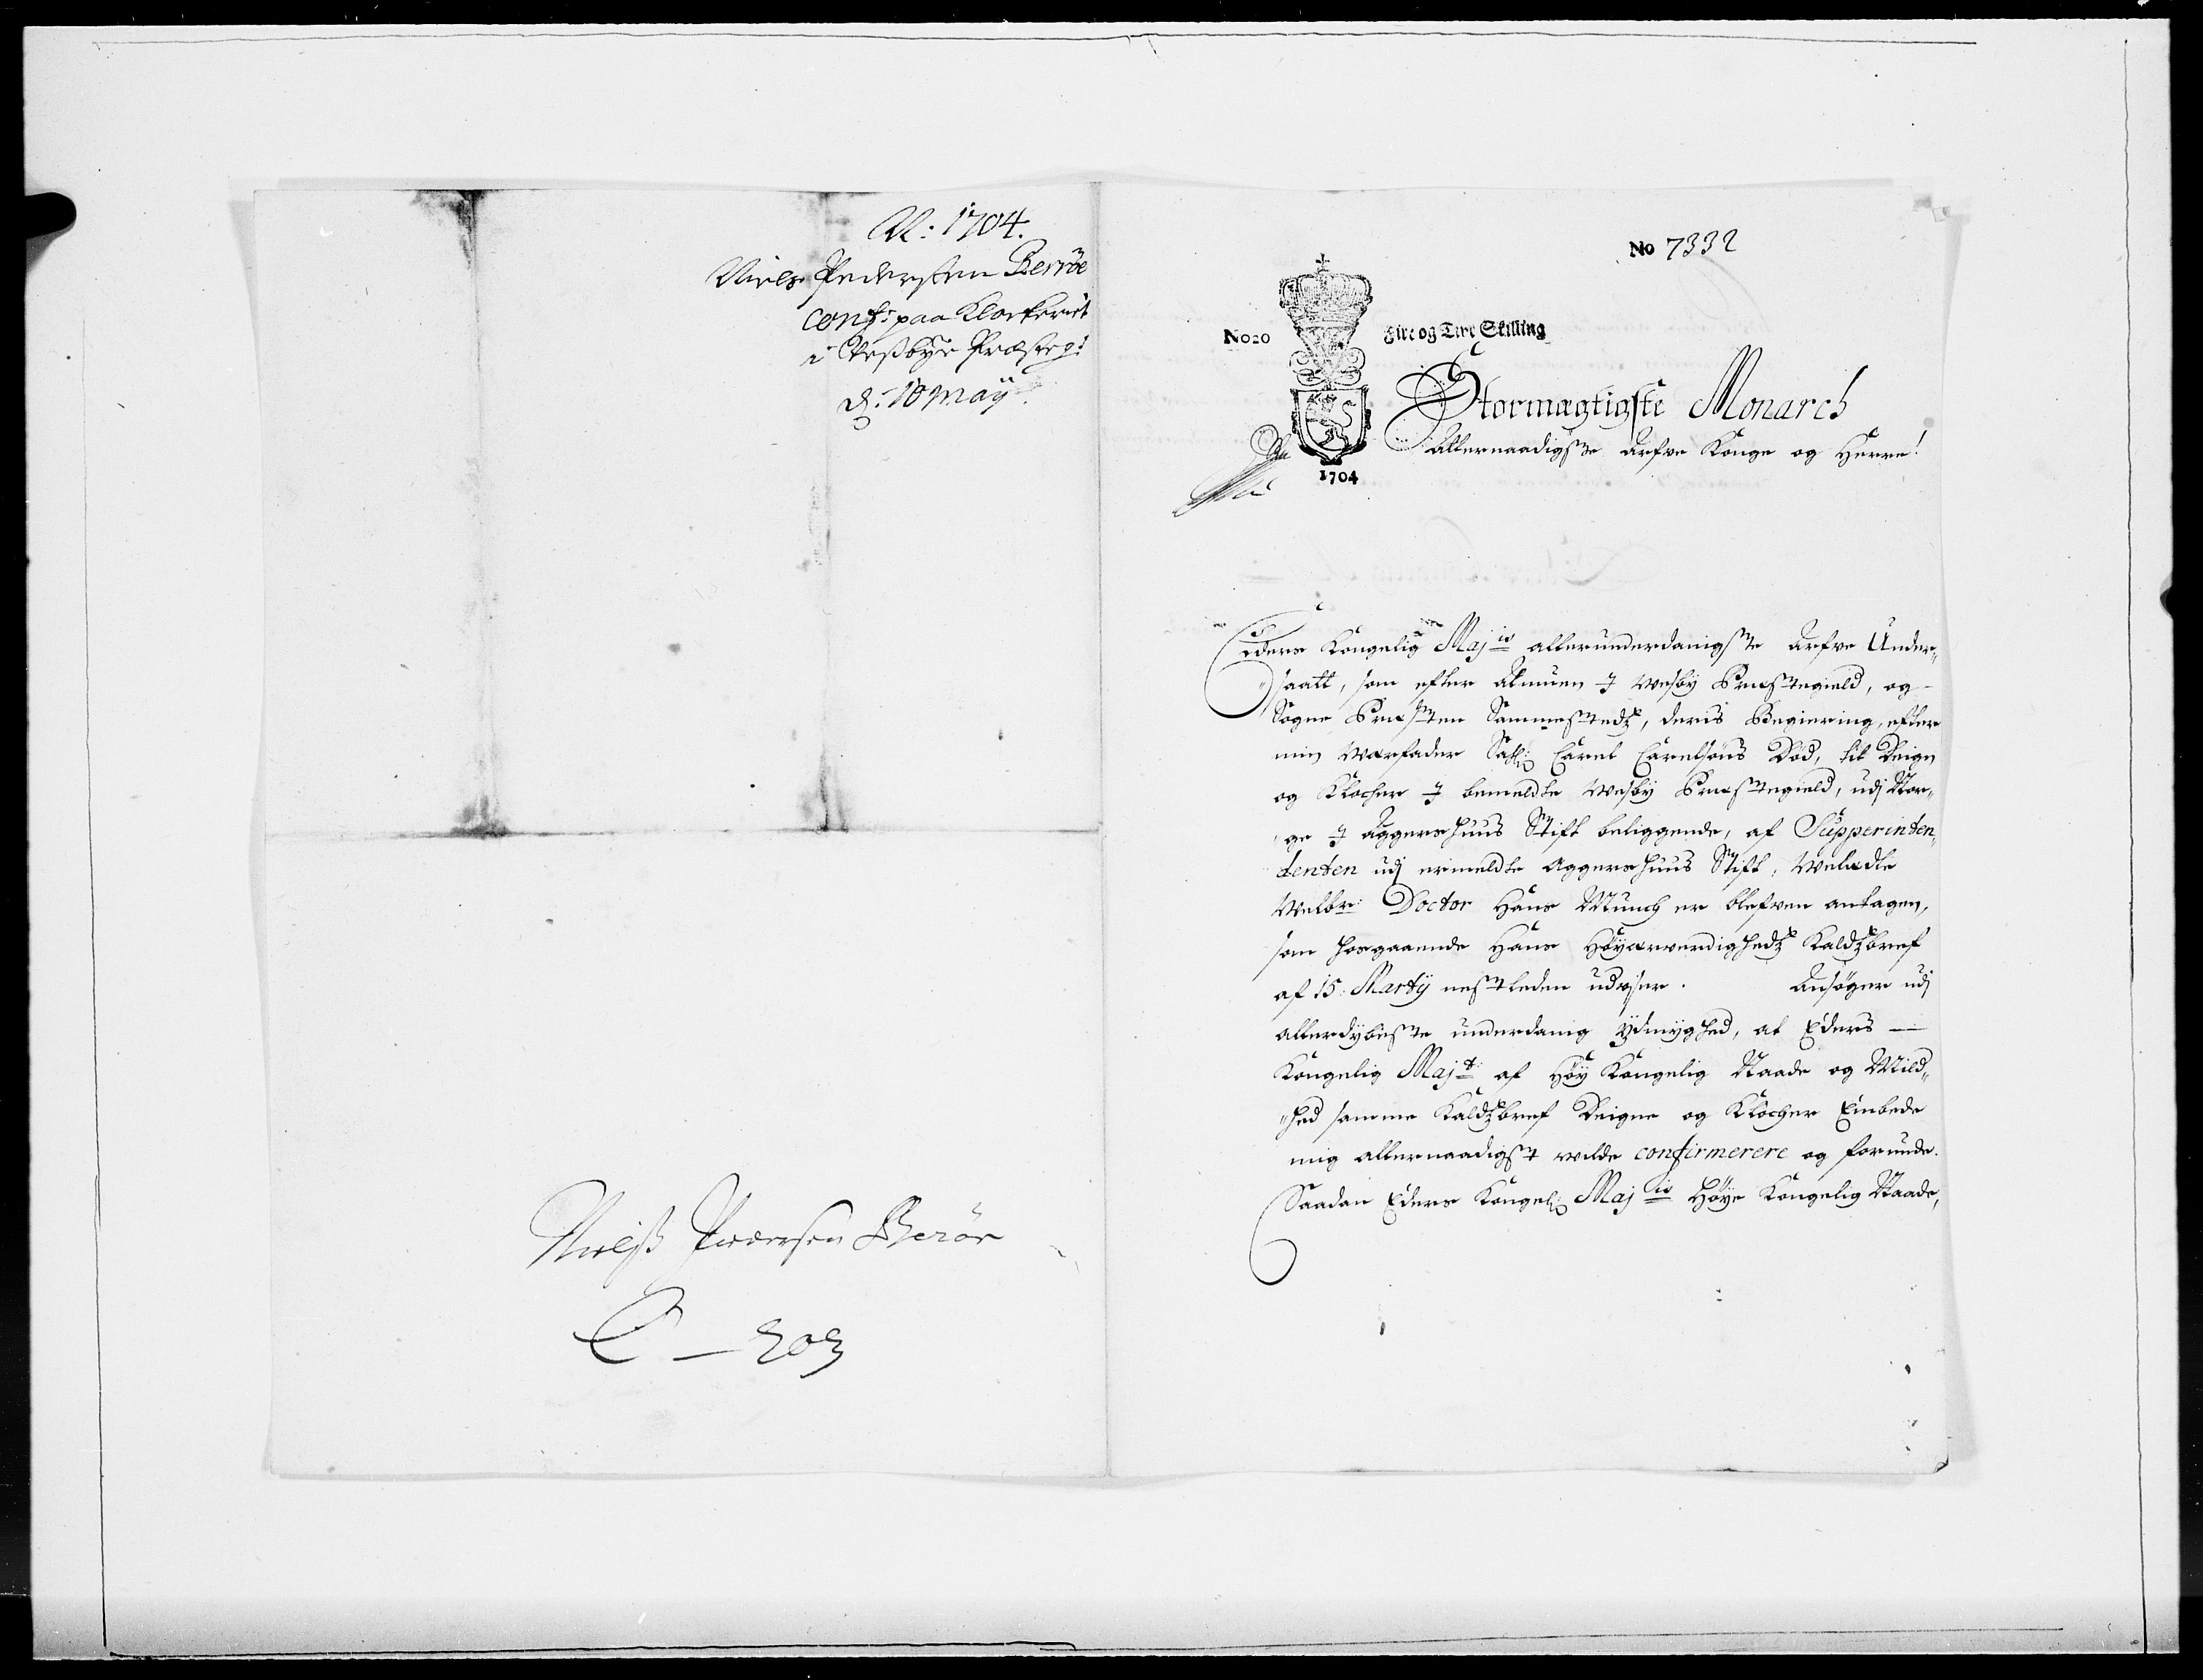 A: 1704.
Niels Pedersen Berröe
conf: paa Klockeriet
i Weßbye Præsteg:
d: 10 Maÿ.
Nielß Pedersen Beröe
No 7332
No 20
Fire og Tive Skilling
1704
Stormægtigste Monarch
Allernaadigste Arfve Konge og Herre!
Eders Kongelig Maj:ts allerunderdanigste Arfve Under„
„saatt, som efter Almuen J Wesby Præstegield, og
Sogne Præsten Sammestedz, deris Begiering, efter
min Værfader Sal: Carel Carelsöns Död, til Deign
og Klocher J bemeldte Wesby Præstegield, udj Nor„
„ge J Aggershuus Stift beliggende, af Supperinten„
denten udj ermeldte Aggershuus Stift, Welædle
Welbr: Doctor Hans Munch er blefven antagen,
som hosgaaende Hans Höyærverdighedz Kaldzbref
af 15: Martij nestleden udviser. Ansöger udj
allerdybeste underdanig Ydmyghed, at Eders
Kongelig Maj:t af Höy Kongelig Naade og Mild„
„hed samme Kaldzbref Deigne og Klocher Embede
mig allernaadigst vilde confirmerere og forunde.
Saadan Eders Kongel: Maj:ts Höye Kongelig Naade,